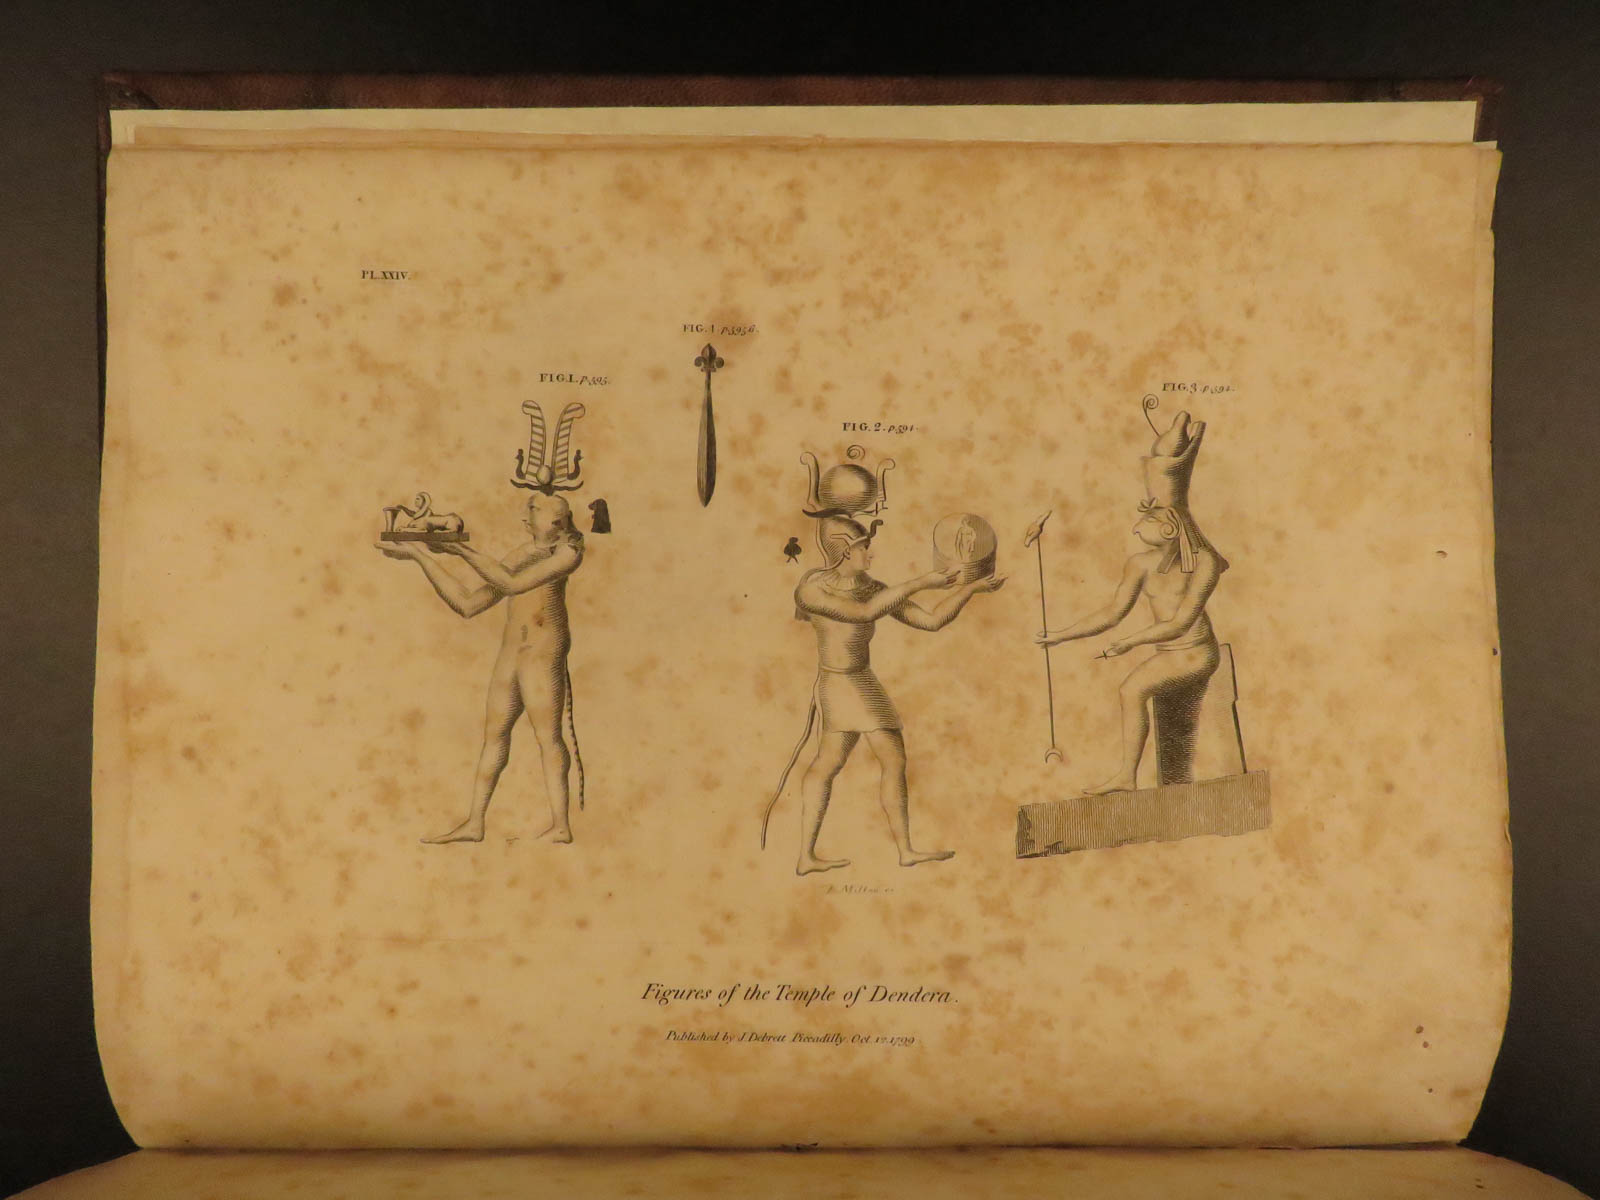 PL.XXIV.
FIG. 4. p.595 6.
FIG.1. p.595.
FIG. 3. p.594.
FIG. 2. p.594.
Milton
Figures of the Temple of Dendera.
Published by J. Debrett Piccadilly. Oct. 12. 1799.